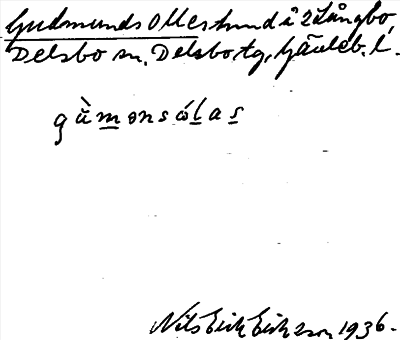 Gudmunds Olles hmd å 2 Långbo,
Delsbo sn, Delsbo tg, Gävleb. l.
gù̀monsólas
Nils Erik Erikzson 1936.